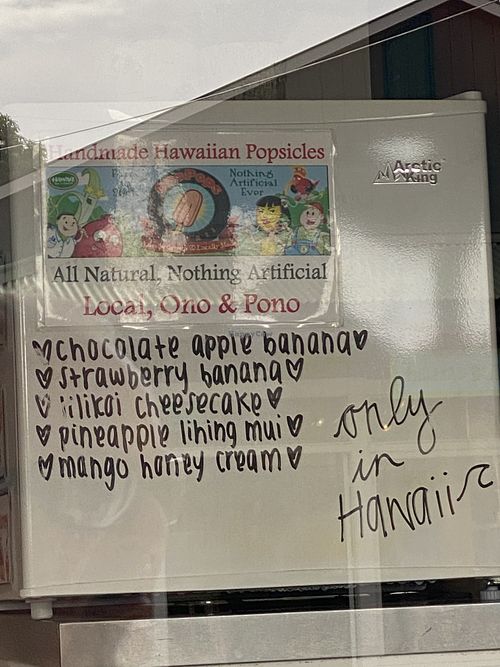 Handmade Hawaiian Popsicles
Nothing
Artificial
Ever
Arctic
King
All Natural, Nothing Artificial
Local, Ono & Pono
chocolate apple banana
strawberry banana
lilikoi cheesecake
pineapple lihing mui
mango honey cream
only
in
Hawaii